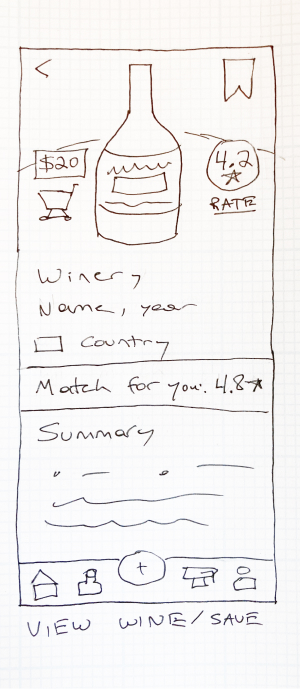 <
$20
4.2
RATE
Winery
Name, year
Country
Match for you: 4.8★
Summary
+
VIEW WINE/SAVE